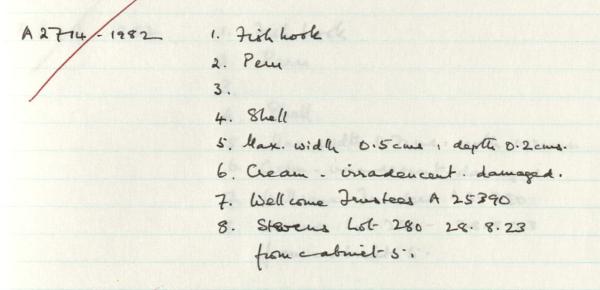 A2714-1982 1. Fish hook
2. Peru
3.
4. Shell
5. Max. width 0.5cms. depth 0.2cms.
6. Cream - irradencent. damaged.
7. Wellcome Trustees A 25390
8. Stevens Lot 280 - 28.8.23
from cabinet 5.